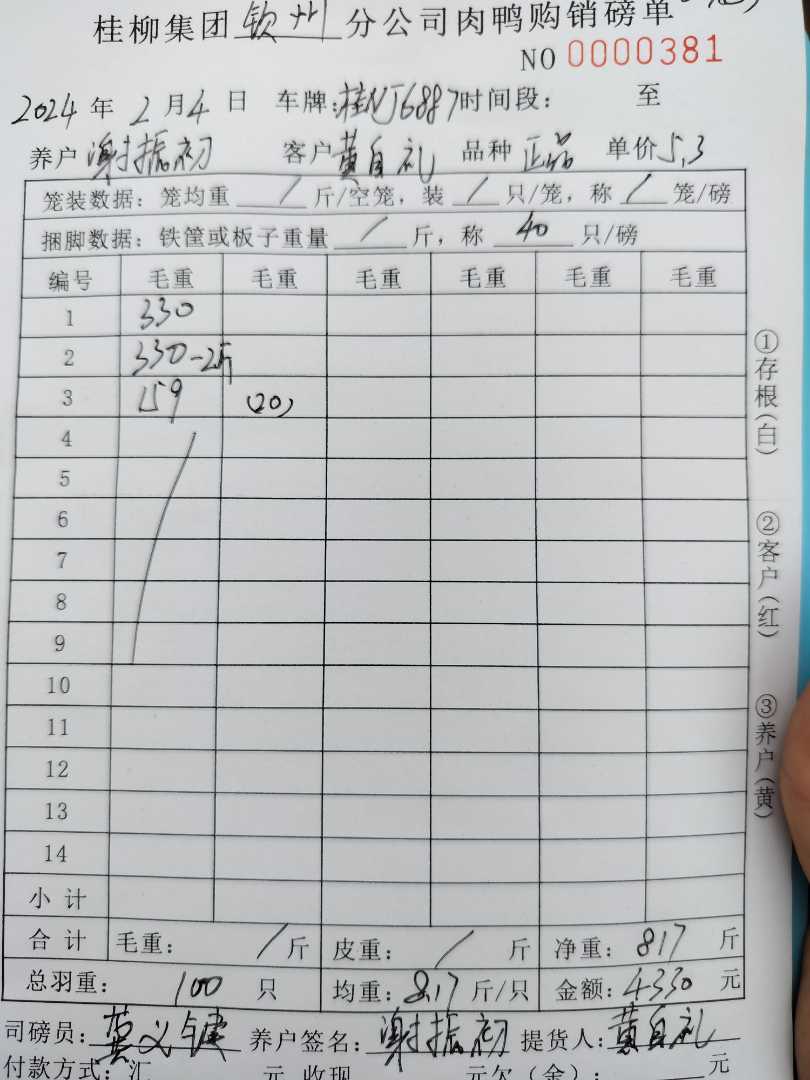 桂柳集团 钦州 分公司肉鸭购销磅单
NO 0000381
2024 年 2 月 4 日 车牌:桂NJ6887 时间段: 至
养户 谢振初 客户 黄自礼 品种 正品 单价 5.3
笼装数据: 笼均重 / 斤/空笼, 装 / 只/笼, 称 / 笼/磅
捆脚数据: 铁筐或板子重量 / 斤, 称 40 只/磅
编号 毛重 毛重 毛重 毛重 毛重 毛重
1 330
2 330-2斤
3 159 (20)
4
5
6
7
8
9
10
11
12
13
14
小计
合计 毛重: / 斤 皮重: / 斤 净重: 817 斤
总羽重: 100 只 均重: 8.17 斤/只 金额: 4330 元
司磅员: 养户签名: 谢振初 提货人: 黄自礼
付款方式: 汇 元 收现 元欠(金): 元
①存根(白)
②客户(红)
③养户(黄)